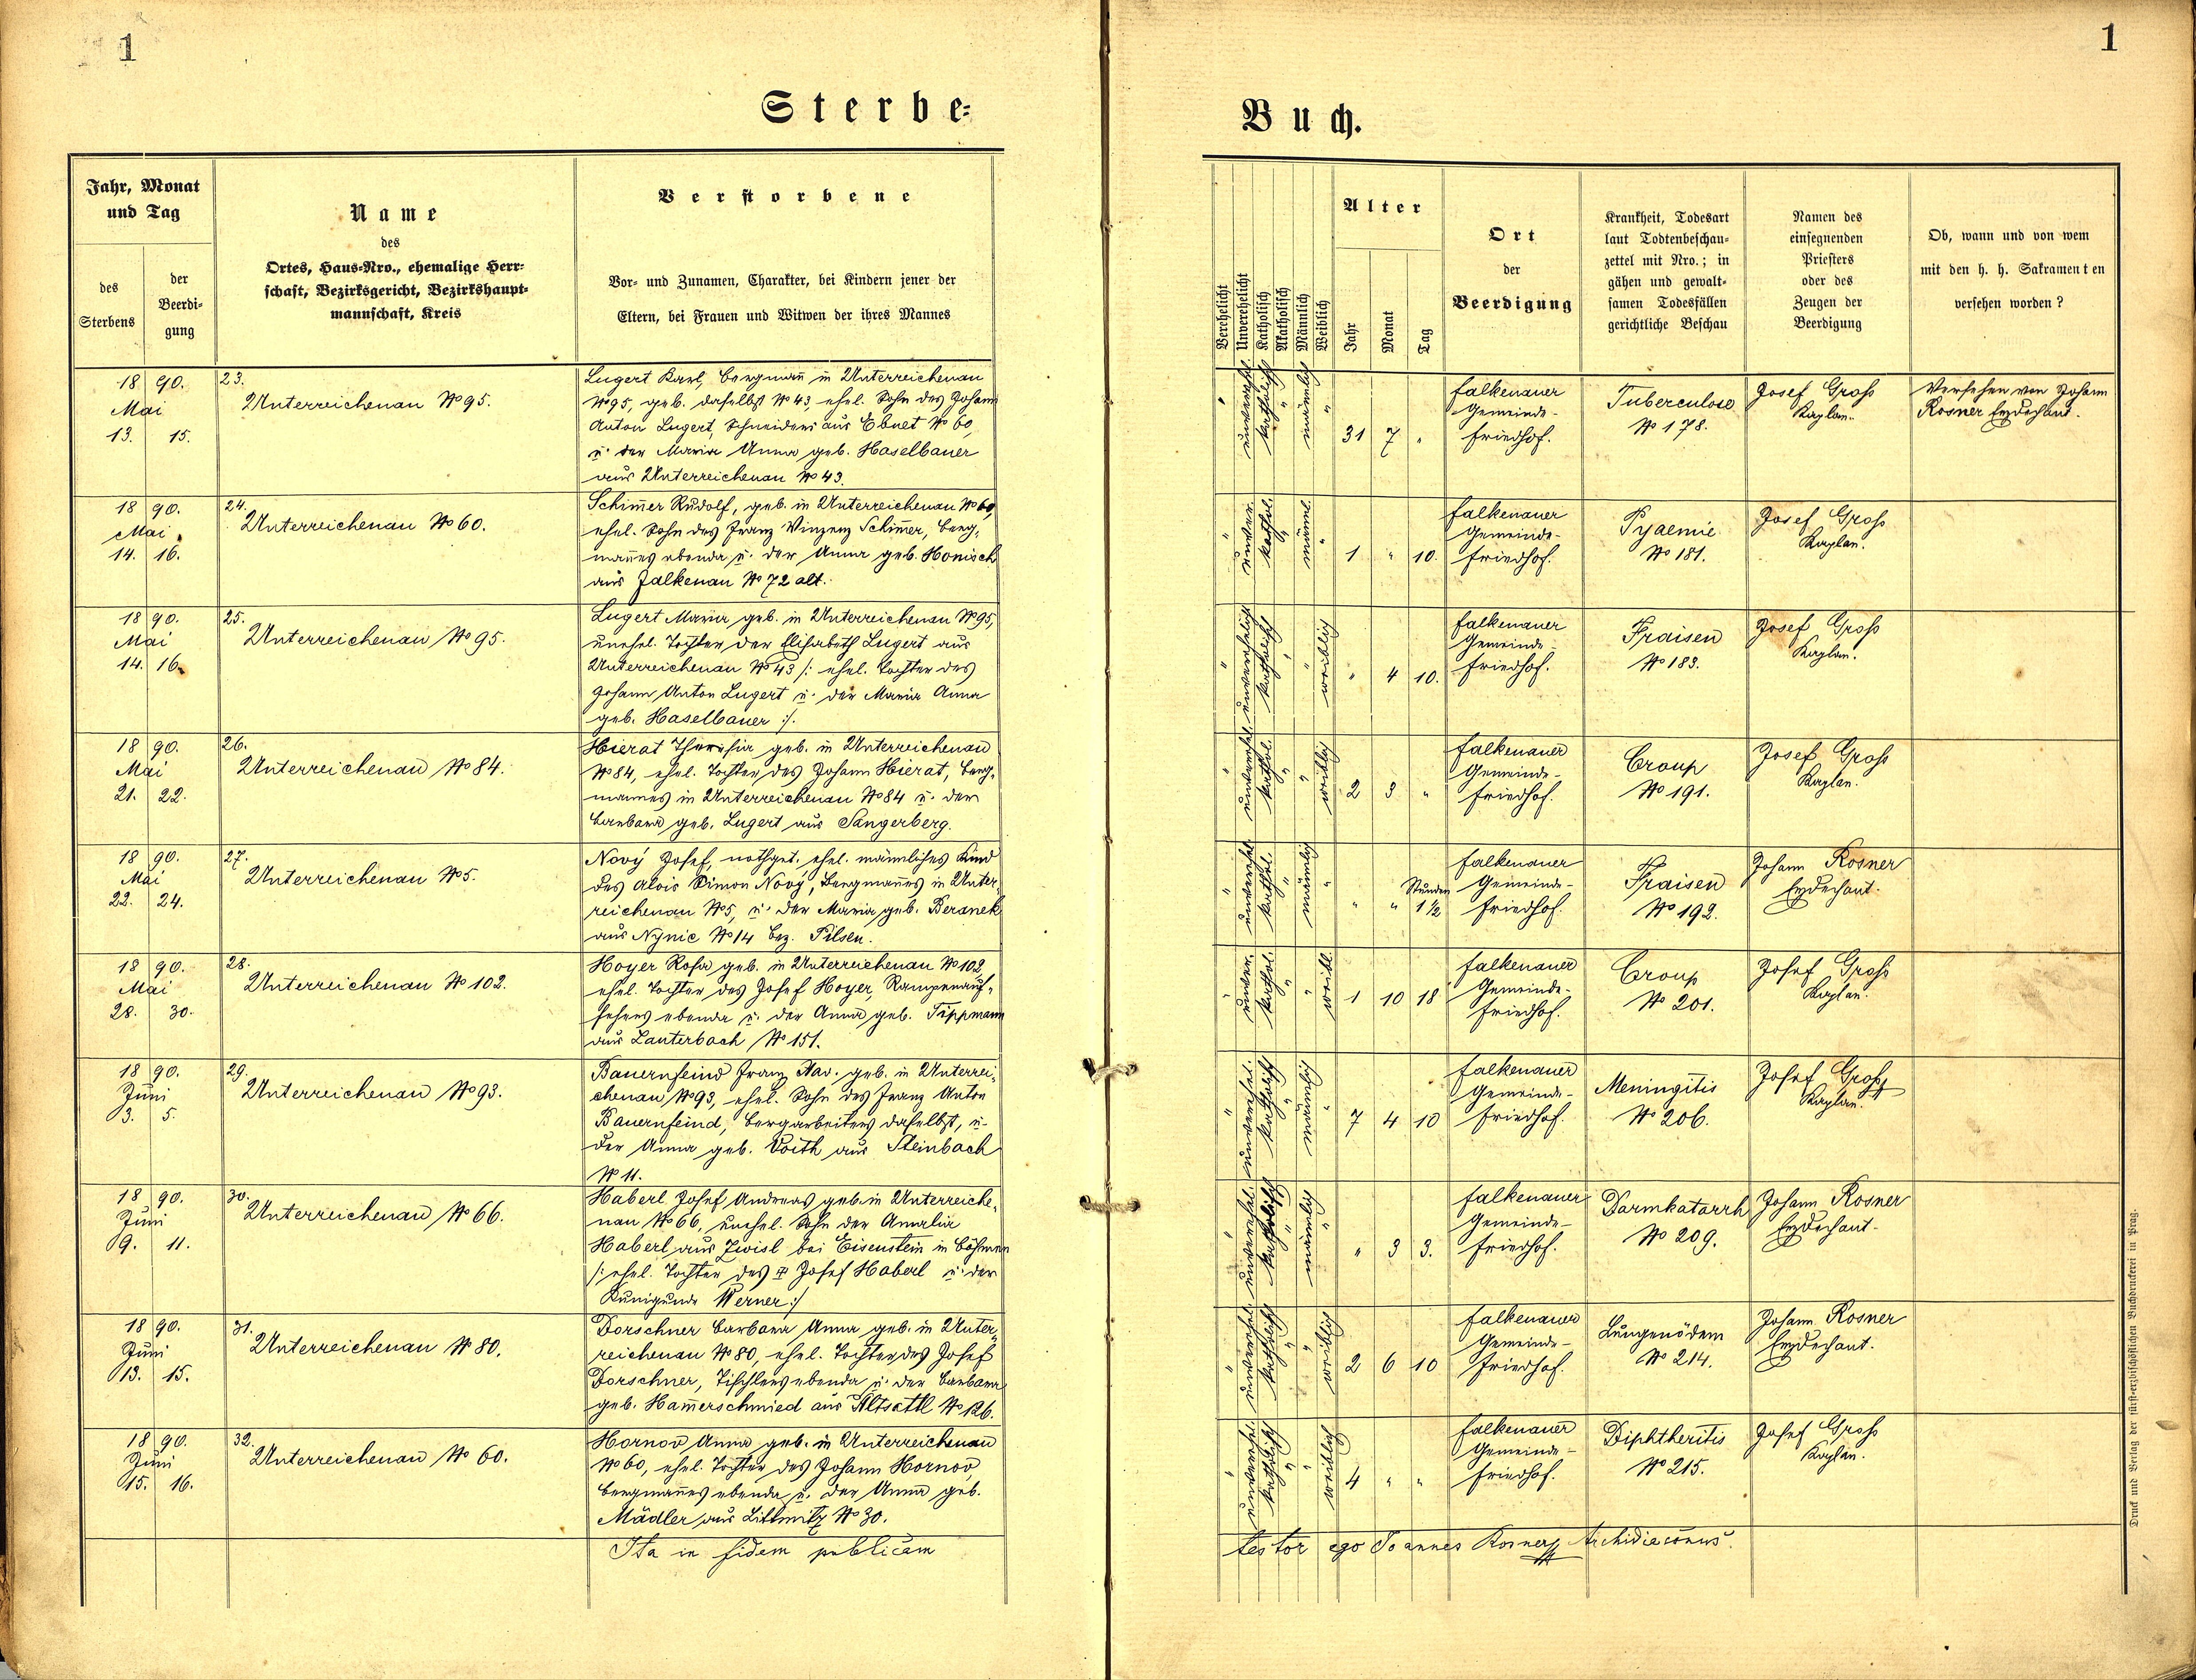 1
1
Sterbe=
Buch.
Jahr, Monat
und Tag
des
Sterbens
der
Beerdi=
gung
Name
des
Ortes, Haus=Nro., ehemalige Herr=
schaft, Bezirksgericht, Bezirkshaupt=
mannschaft, Kreis
Verstorbene
Vor= und Zunamen, Charakter, bei Kindern jener der
Eltern, bei Frauen und Witwen der ihres Mannes
Verehelicht
Unverehelicht
Katholisch
Akatholisch
Männlich
Weiblich
Alter
Jahr
Monat
Tag
Ort
der
Beerdigung
Krankheit, Todesart
laut Todtenbeschau=
zettel mit Nro.; in
gähen und gewalt=
samen Todesfällen
gerichtliche Beschau
Namen des
einsegnenden
Priesters
oder des
Zeugen der
Beerdigung
Ob, wann und von wem
mit den h. h. Sakramenten
versehen worden?
1890.
Mai
13. 15.
23.
Unterreichenau No 95.
Lugert Karl, Bergmañ in Unterreichenau
No 95, geb. daselbst No 43, ehel. Sohn des Johann
Anton Lugert, Schneiders aus Ebnet No 60,
u. der Maria Anna geb. Haselbauer
aus Unterreichenau No 43.
" unverehel. katholisch " männlich "
31 7 "
Falkenauer
Gemeinde-
Friedhof.
Tuberculose
No 178.
Josef Gross
Kaplan.
Versehen von Johann
Rosner Erzdechant.
1890.
Mai
14. 16.
24.
Unterreichenau No 60.
Schim̃er Rudolf, geb. in Unterreichenau No 60,
ehel. Sohn des Franz Vinzenz Schim̃er, Berg-
mañes ebenda u. der Anna geb. Honisch
aus Falkenau No 72 alt.
" unver. kathol. " männl. "
1 " 10.
Falkenauer
Gemeinde-
Friedhof.
Pyaemie
No 181.
Josef Gross
Kaplan.
1890.
Mai
14. 16.
25.
Unterreichenau No 95.
Lugert Maria geb. in Unterreichenau No 95,
unehel. Tochter der Elisabeth Lugert aus
Unterreichenau No 43 /: ehel. Tochter des
Johann Anton Lugert u. der Maria Anna
geb. Haselbauer :/.
" unverehelicht katholisch " " weiblich
" 4 10.
Falkenauer
Gemeinde-
Friedhof.
Fraisen
No 183.
Josef Gross
Kaplan.
1890.
Mai
21. 22.
26.
Unterreichenau No 84.
Hierat Theresia geb. in Unterreichenau
No 84, ehel. Tochter des Johann Hierat, Berg-
mannes in Unterreichenau No 84 u. der
Barbara geb. Lugert aus Sangerberg.
" unverehel. kathol. " " weiblich
2 3 "
Falkenauer
Gemeinde-
Friedhof.
Croup
No 191.
Josef Gross
Kaplan.
1890.
Mai
22. 24.
27.
Unterreichenau No 5.
Nový Josef, nothget. ehel. männliches Kind
des Alois Simon Nový, Bergmañes in Unter-
reichenau No 5, u. der Maria geb. Beranek
aus Nynic No 14 Bez. Pilsen.
" unverehel. kathol. " männlich "
" " Stunden
1½
Falkenauer
Gemeinde-
Friedhof.
Fraisen
No 192.
Johann Rosner
Erzdechant.
1890.
Mai
28. 30.
28.
Unterreichenau No 102.
Hoyer Rosa geb. in Unterreichenau No 102,
ehel. Tochter des Josef Hoyer, Rampenauf-
sehers ebenda u. der Anna geb. Tippmann
aus Lauterbach No 151.
" unver. kathol. " " weibl.
1 10 18
Falkenauer
Gemeinde-
Friedhof.
Croup
No 201.
Josef Gross
Kaplan.
1890.
Juni
3. 5.
29.
Unterreichenau No 93.
Bauernfeind Franz Xav. geb. in Unterrei-
chenau No 93, ehel. Sohn des Franz Anton
Bauernfeind, Bergarbeiters daselbst, u.
der Anna geb. Voith aus Steinbach
No 11.
" unverehel. katholisch " männlich "
7 4 10
Falkenauer
Gemeinde-
Friedhof.
Meningitis
No 206.
Josef Gross
Kaplan.
1890.
Juni
9. 11.
30.
Unterreichenau No 66.
Haberl Josef Andreas geb. in Unterreiche-
nau No 66, unehel. Sohn der Amalia
Haberl aus Zwisl bei Eisenstein in Böhmen
/: ehel. Tochter des Josef Haberl u. der
Kunigunde Werner :/
" unverehel. katholisch " männlich "
" 3 3.
Falkenauer
Gemeinde-
Friedhof.
Darmkatarrh
No 209.
Johann Rosner
Erzdechant.
1890.
Juni
13. 15.
31.
Unterreichenau No 80.
Dorschner Barbara Anna geb. in Unter-
reichenau No 80, ehel. Tochter des Josef
Dorschner, Tischlers ebenda u. der Barbara
geb. Ham̃erschmied aus Altsattl No 126.
" unverehel. katholisch " " weiblich
2 6 10
Falkenauer
Gemeinde-
Friedhof.
Lungenödem
No 214.
Johann Rosner
Erzdechant.
1890.
Juni
15. 16.
32.
Unterreichenau No 60.
Hornov Anna geb. in Unterreichenau
No 60, ehel. Tochter des Johann Hornov,
Bergmañes ebenda u. der Anna geb.
Mädler aus Littmitz No 30.
" unverehel. katholisch " " weiblich
4 " "
Falkenauer
Gemeinde-
Friedhof.
Diphtheritis
No 215.
Josef Gross
Kaplan.
Ita in fidem publicam
testor ego Joannes Rosner Archidiaconus.
Druck und Verlag der fürst=erzbischöflichen Buchdruckerei in Prag.